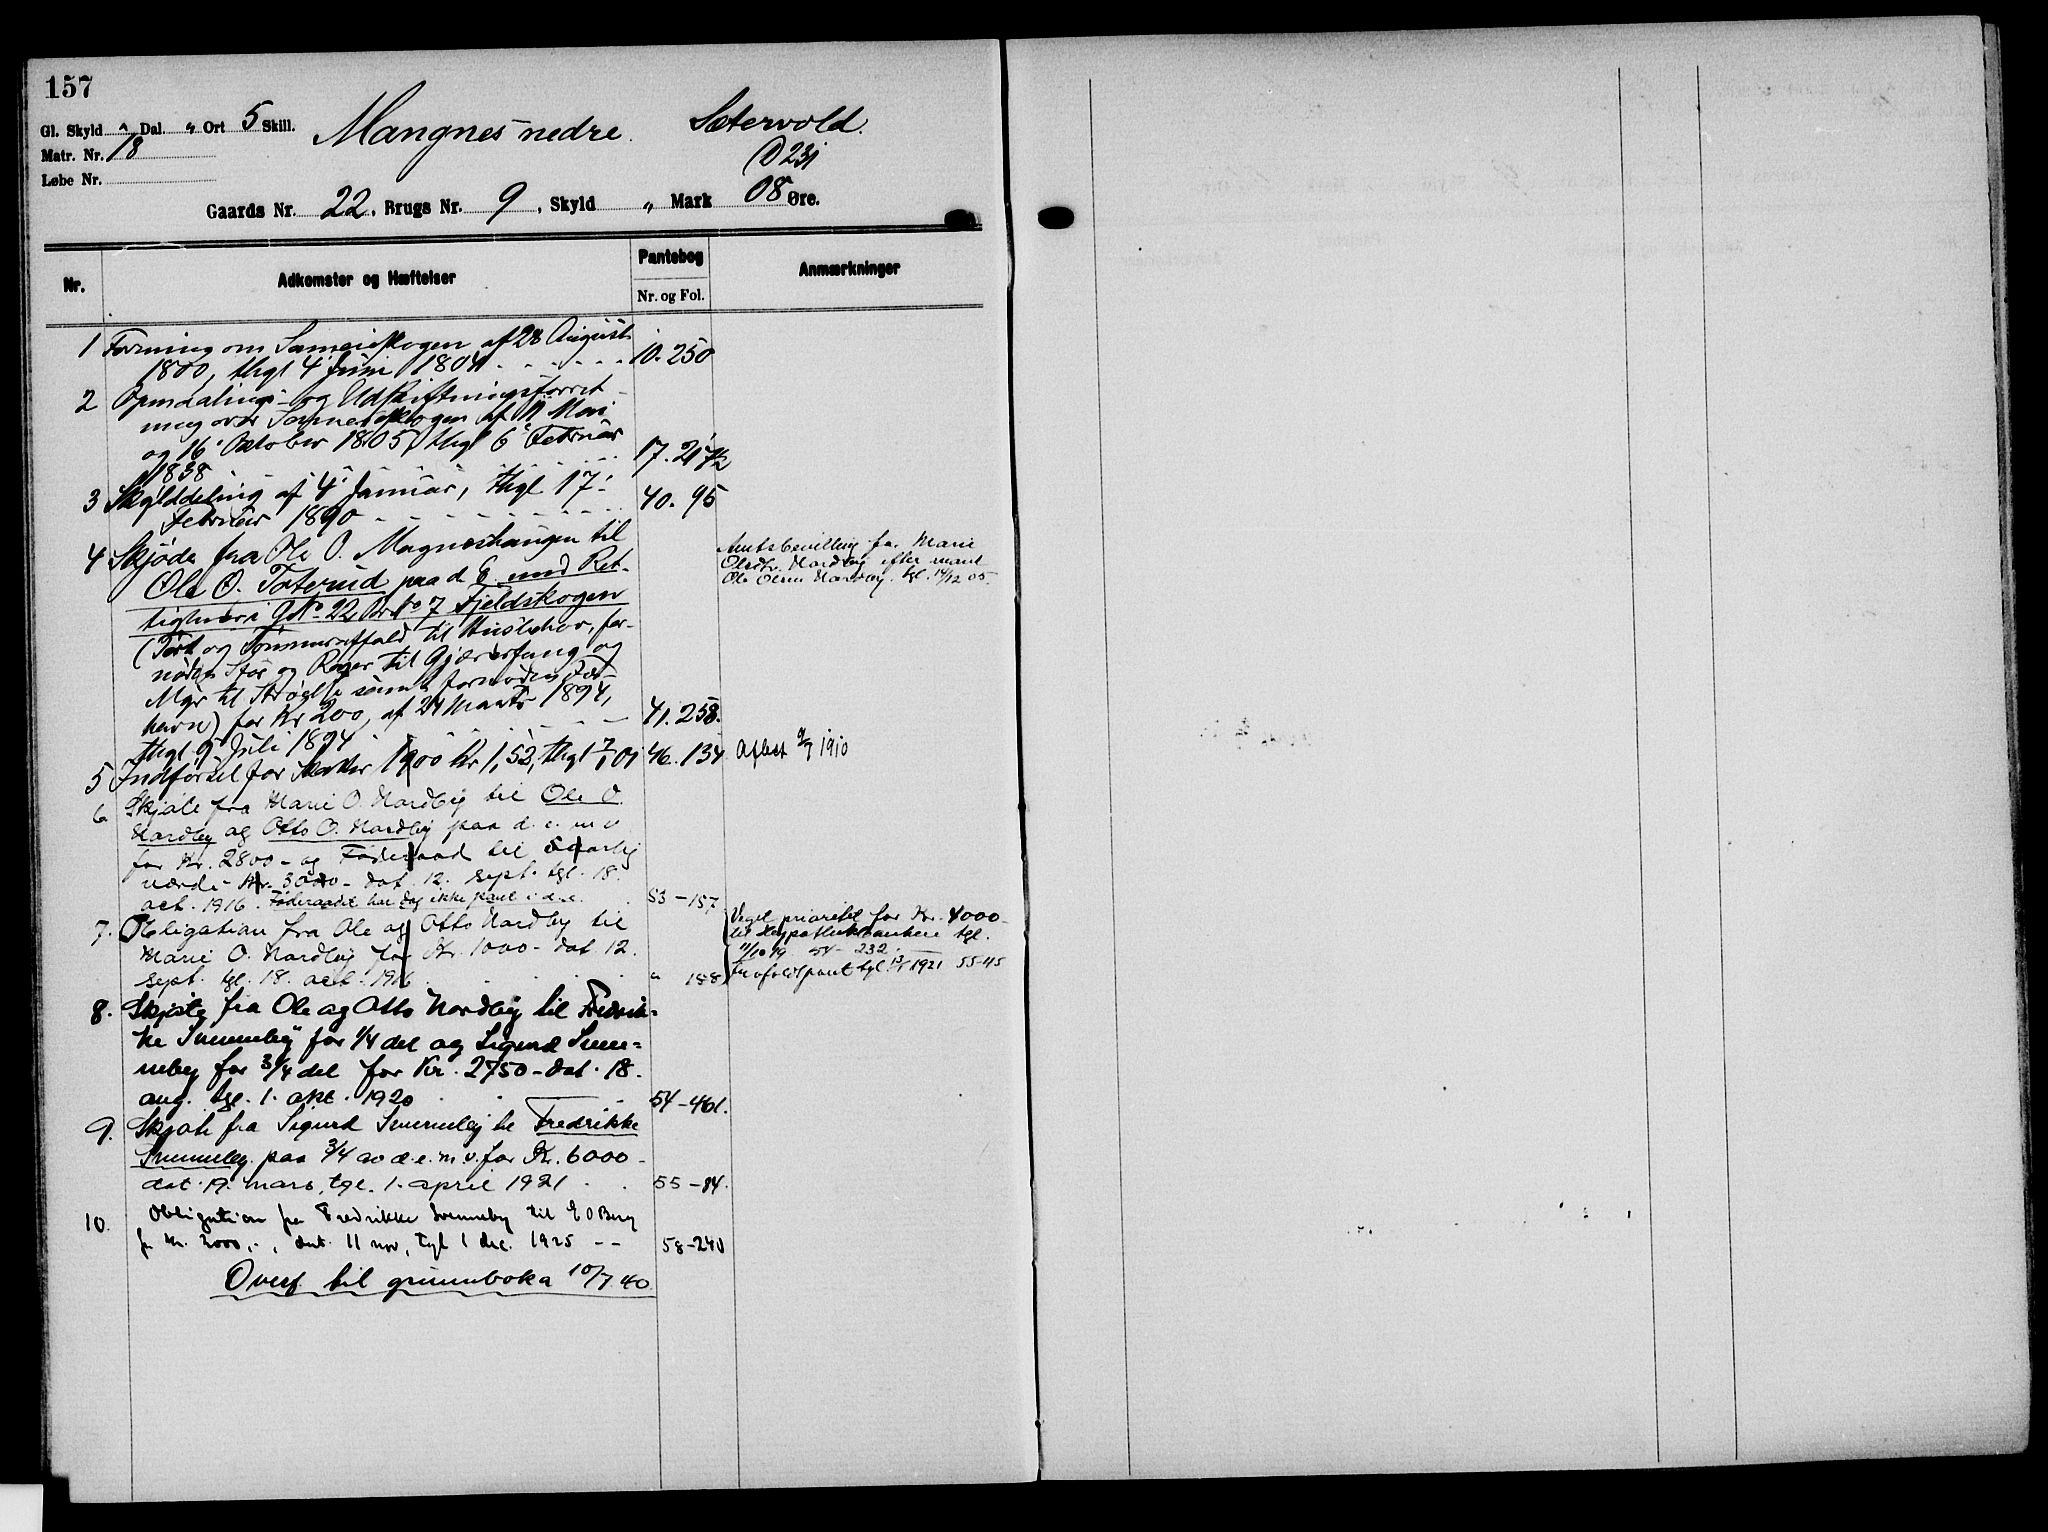 157
Gl. Skyld " Dal. " Ort 5 Skill.
Mangnes nedre. Sætervold.
Matr. Nr. 18
(D 231
Løbe Nr.
Gaards Nr. 22, Brugs Nr. 9, Skyld " Mark 08 Øre.
Nr. Adkomster og Hæftelser Pantebog Nr. og Fol. Anmærkninger
1 Forening om Sameieskogen af 28 August
1800, thgl 4 Juni 1804 10. 250
2 Opmaalings- og Udskiftningsforret-
ning over Sameieskogen af Mai
og 16 Oktober 1805, thgl 6 Februar
1838 17. 217½
3 Skylddeling af 4 Januar, thgl 17
Februar 1890 40. 95
4 Skjøde fra Ole O. Magneshaugen til
Ole O. Taterud paa d. E. med Ret-
tigheder i GNo 22, BrNo 7 Fjeldskogen
(Tört og Tömmeraffald til Husbehov, for-
nøden Stör og Rager til Gjærderfang og
Myr til Strøelse samt fornøden Fæ-
havn) for Kr 200, af 24 Marts 1894,
thgl 9 Juli 1894 41. 258.
Amtsbevilling for Marie
Olsdtr. Nordby efter mand
Ole Olsen Nordby. tgl. 14/12 05.
5 Indførsel for Skatter 1900 Kr 1,52, thgl 7/1 01 46. 134 Aflest 9/7 1910
6 Skjøte fra Marie O. Nordby til Ole O.
Nordby og Otto O. Nordby paa d. e. m v
for Kr. 2800 - og Føderaad til 5 aarlig
værdi - Kr. 3000 - dat. 12. sept. tgl. 18.
oct. 1916. Føderaadet har dog ikke pant i d.e. 53 - 157
7. Obligation fra Ole og Otto Nordby til
Marie O. Nordby for Kr. 1000 - dat. 12.
sept. tgl. 18. oct. 1916 " 188
Veget prioritet for Kr. 4000 -
til Hypotekbanken tgl.
11/10 19 54 - 232.
1921 55-45
8. Skjøte fra Ole og Otto Nordby til Fredrik-
ke Svenneby for 1/4 del og Sigurd Sven-
neby for 3/4 del for Kr. 2750 - dat. 18.
aug. tgl. 1. okt. 1920 54 - 461.
9. Skjøte fra Sigurd Svenneby til Fredrikke
Svenneby paa 3/4 av d. e. m. v. for Kr. 6000 -
dat. 19. mars, tgl. 1. april 1921 55 - 84.
10. Obligation fra Fredrikke Svenneby til E O Berg
for Kr. 2000,-, dat. 11 nov, tgl 1 dec. 1925 -- 58 - 240
Overf. til grunnboka 10/7 40.